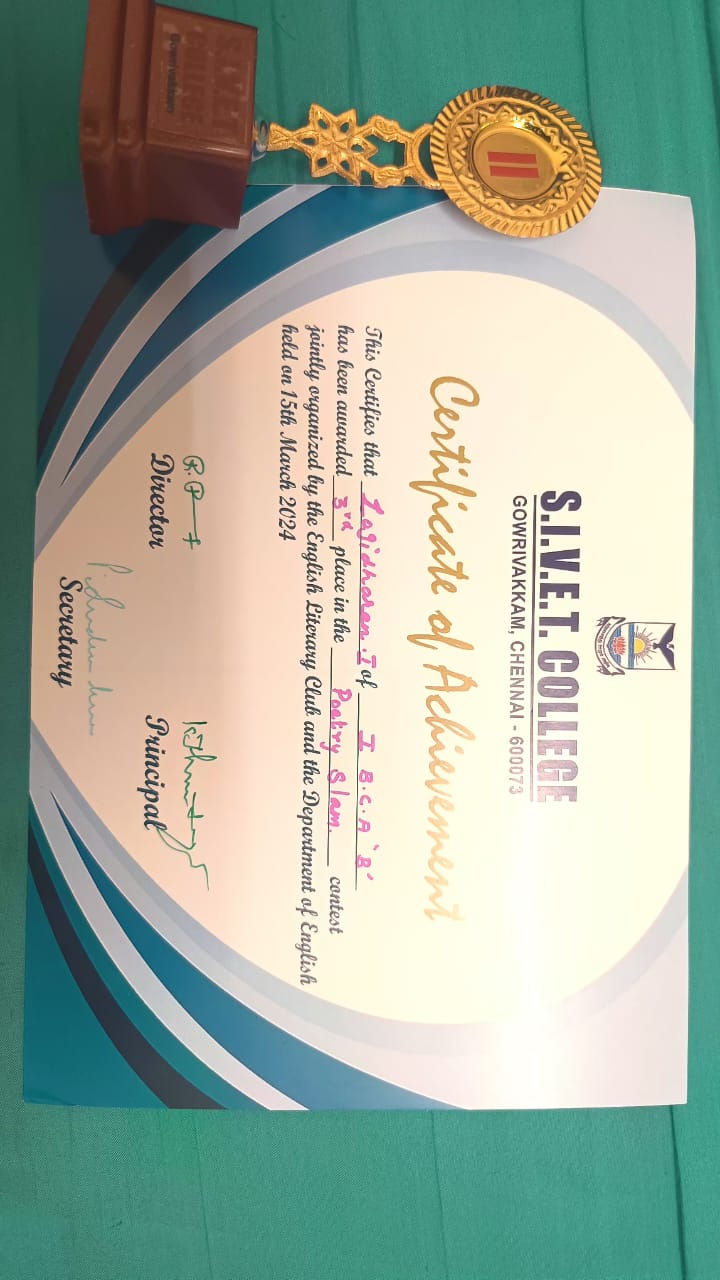 S.I.V.E.T. COLLEGE
GOWRIVAKKAM, CHENNAI - 600073
Certificate of Achievement
This Certifies that Lajidharan.I of I B.C.A 'B'
has been awarded 3rd place in the Poetry Slam. contest
jointly organized by the English Literary Club and the Department of English
held on 15th March 2024
Director
Principal
Secretary
II
S.I.V.E.T
COLLEGE
Gowrivakkam